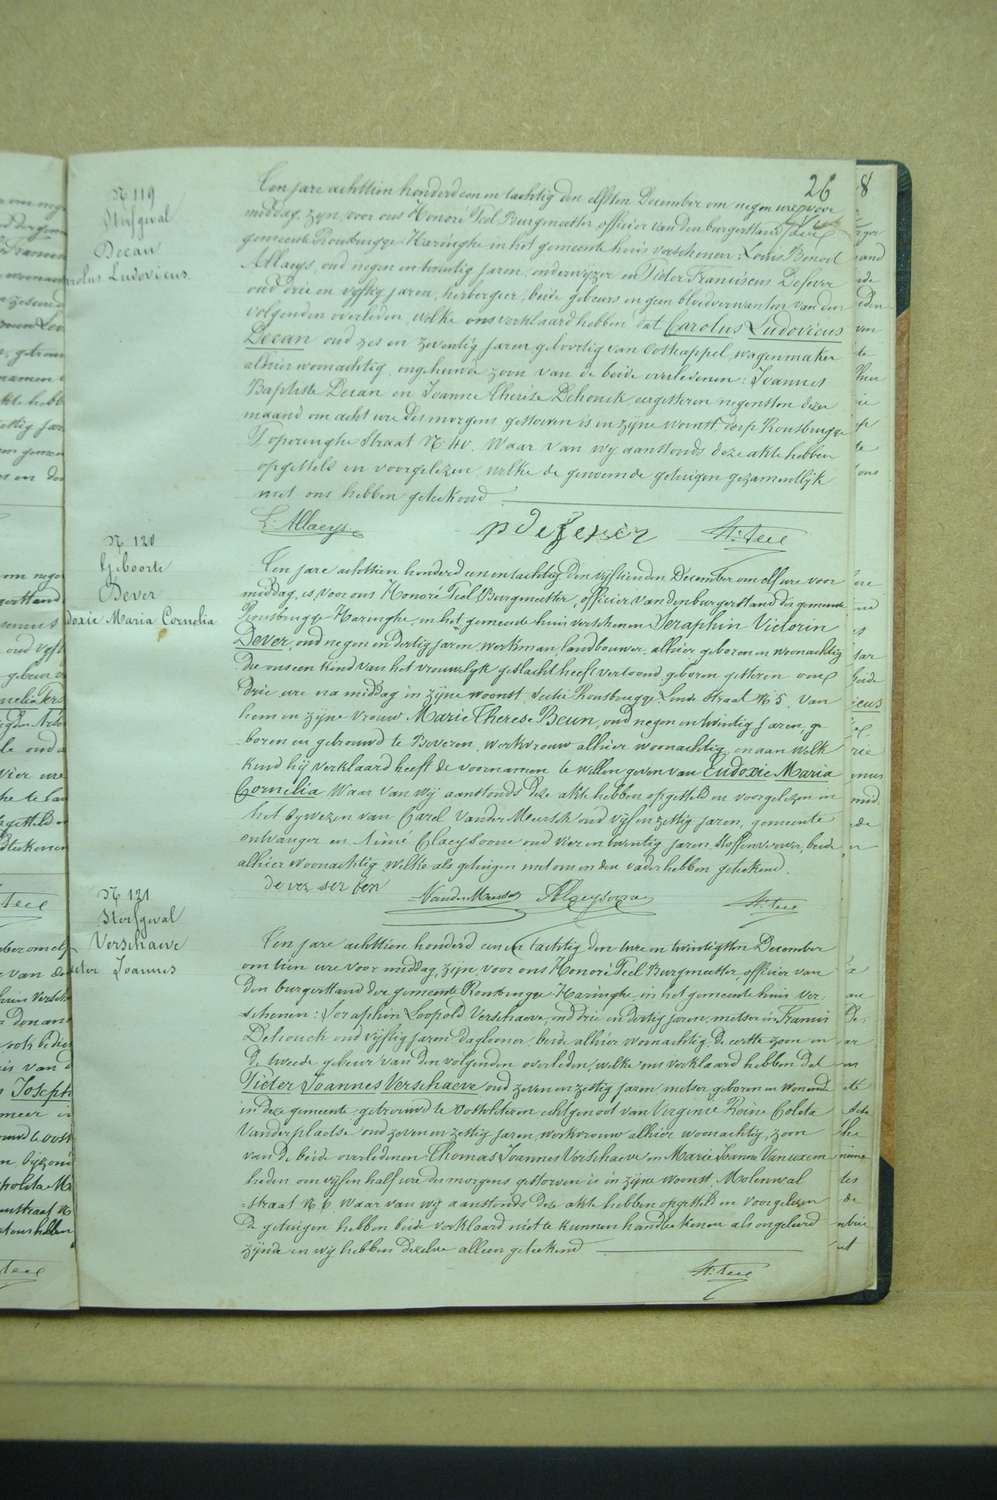 26
8
N 119
Sterfgeval
Decan
Carolus Ludovicus
Ten jare achttien honderd een en tachtig den elfsten December om negen ure voor
middag, zyn, voor ons Honoré Teel Burgmeester officier van den burgerstand der
gemeente Rousbrugge Haringhe in het gemeente huis verschenen: Louis Benoit
Allaeys, oud negen en twintig jaren, onderwyzer en Pieter Franciscus Defever
oud drie en vyftig jaren, herbergier, beide gebeurs en geen bloedverwanten van den
volgenden overleden, welke ons verklaard hebben dat Carolus Ludovicus
Decan oud zes en zeventig jaren geboortig van Oostcappel, wagenmaker
alhier woonachtig, ongehuwde zoon van de beide overledenen: Joannes
Baptiste Decan en Joanne Therese Dehouck eergisteren negensten dezer
maand om acht ure des morgens gestorven is in zyne woonst dorp Rousbrugge
Poperinghe Straat N. 40. Waar van wy aanstonds deze akte hebben
opgesteld en voorgelezen, welke de genoemde getuigen gezamentlyk
met ons hebben geteekend
L. Allaeys pdefever H. Teel
N 120
Geboorte
Dever
doxie Maria Cornelia
Ten jare achttien honderd een en tachtig den vyftienden December om elf ure voor
middag, is voor ons Honoré Teel Burgmeester, officier van den burgerstand der gemeente
Rousbrugge Haringhe, in het gemeente huis verschenen Seraphin Victorin
Dever, oud negen en dertig jaren, werkman landbouwer, alhier geboren en woonachtig
die ons een kind van het vrouwelyk geslacht heeft vertoond geboren gisteren om
drie ure na middag in zyne woonst, sectie Rousbrugge Linde straat N 5, van
hem en zyne vrouw Marie Therese Beun, oud negen en twintig jaren, ge
boren en getrouwd te Beveren, werkvrouw alhier woonachtig, en aan welk
kind hy verklaard heeft de voornamen te willen geven van Eudoxie Maria
Cornelia Waar van wy aanstonds deze akte hebben opgesteld en voorgelezen in
het bywezen van Carel Vander Meersch oud vyf en zestig jaren, gemeente
ontvanger en Aimé Claeysoone oud vier en twintig jaren stoffenverver, beide
alhier woonachtig welke als getuigen met ons en den vader hebben geteekend.
dever ser ben VanderMeersch A Claeysoone H. Teel
N 121
Sterfgeval
Verschaeve
Pieter Joannes
Ten jare achttien honderd een en tachtig den twee en twintigsten December
om tien ure voor middag, zyn, voor ons Honoré Teel Burgmeester, officier van
den burgerstand der gemeente Rousbrugge Haringhe, in het gemeente huis ver-
schenen: Seraphin Leopold Verschaeve, oud drie en dertig jaren, metser en Francis
Dehouck oud vyftig jaren daglooner, beide alhier woonachtig, de eerste zoon en
de tweede gebeur van den volgenden overleden, welke ons verklaard hebben dat
Pieter Joannes Verschaeve oud zeven en zestig jaren metser, geboren en wonende
in deze gemeente getrouwd te Oostvleteren echtgenoot van Virginie Reine Colete
Vanderplaetse oud zeven en zestig jaren, werkvrouw alhier woonachtig, zoon
van de beide overledenen Thomas Joannes Verschaeve en Marie Joanna Vanuxem
heden om vyf en half ure des morgens gestorven is in zyne woonst, Molenwal
straat N 6. Waar van wy aanstonds deze akte hebben opgesteld en voorgelezen
de getuigen hebben beide verklaard niet te kunnen handteekenen als ongeleerd
zynde en wy hebben dezelve alleen geteekend
H. Teel